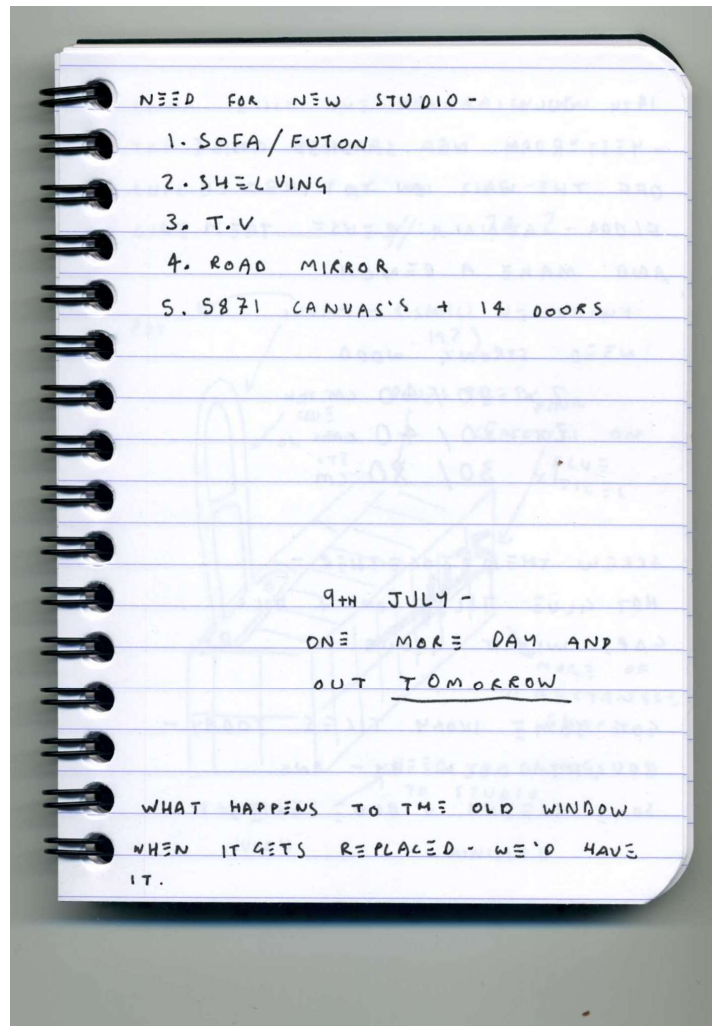 NEED FOR NEW STUDIO -
1. SOFA / FUTON
2. SHELVING
3. T.V
4. ROAD MIRROR
5. 5871 CANVAS'S + 14 DOORS
9TH JULY -
ONE MORE DAY AND
OUT TOMORROW
WHAT HAPPENS TO THE OLD WINDOW
WHEN IT GETS REPLACED - WE'D HAVE
IT.